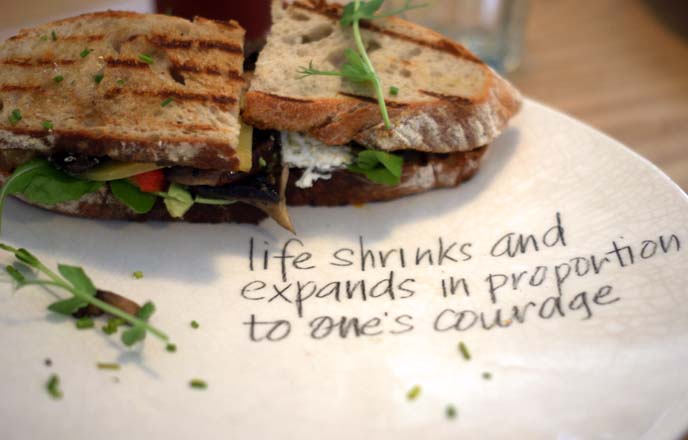 life shrinks and
expands in proportion
to one's courage